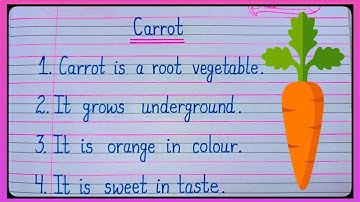 Carrot
1. Carrot is a root vegetable.
2. It grows underground.
3. It is orange in colour.
4. It is sweet in taste.